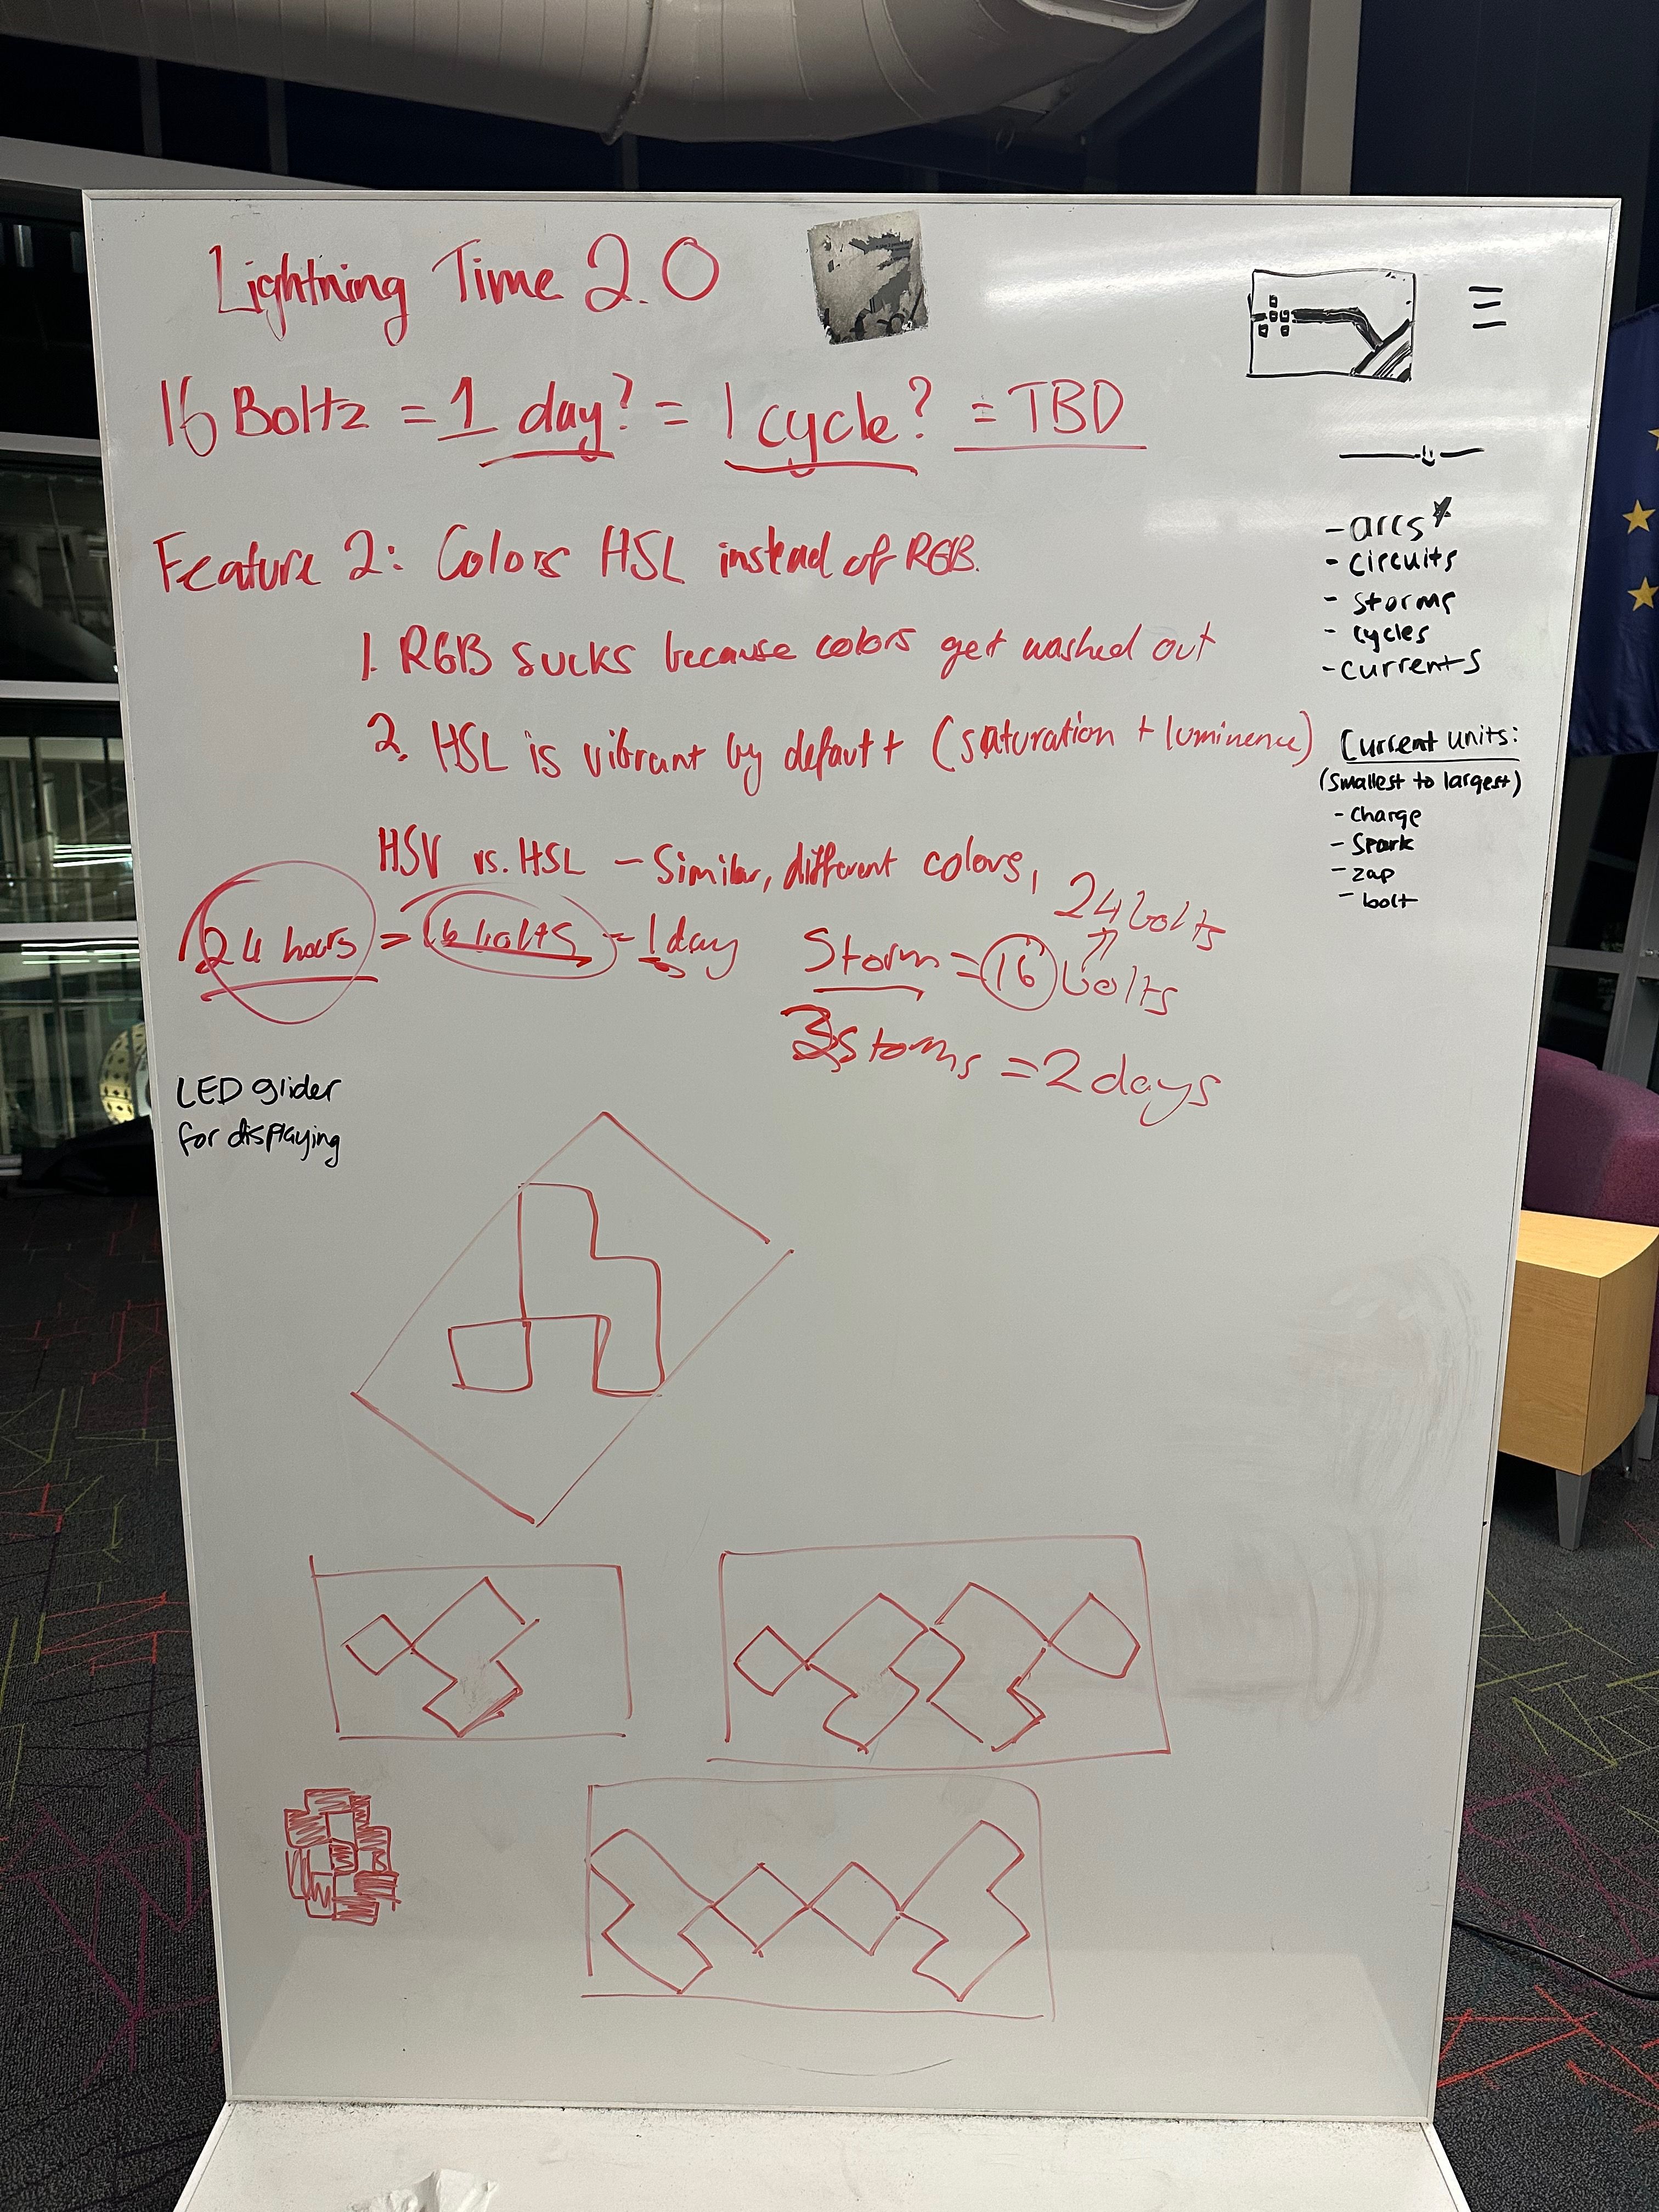 Lightning Time 2.0
16 Boltz = 1 day? = 1 cycle? = TBD
Feature 2: Colors HSL instead of RGB.
1. RGB sucks because colors get washed out
2. HSL is vibrant by default (saturation + luminence)
HSV vs. HSL - Similar, different colors,
24 hours = 16 bolts = 1 day
24 bolts
Storm = 16 bolts
3 Storms = 2 days
LED glider
for displaying
- arcs*
- circuits
- storms
- cycles
- currents
Current units:
(smallest to largest)
- charge
- spark
- zap
- bolt